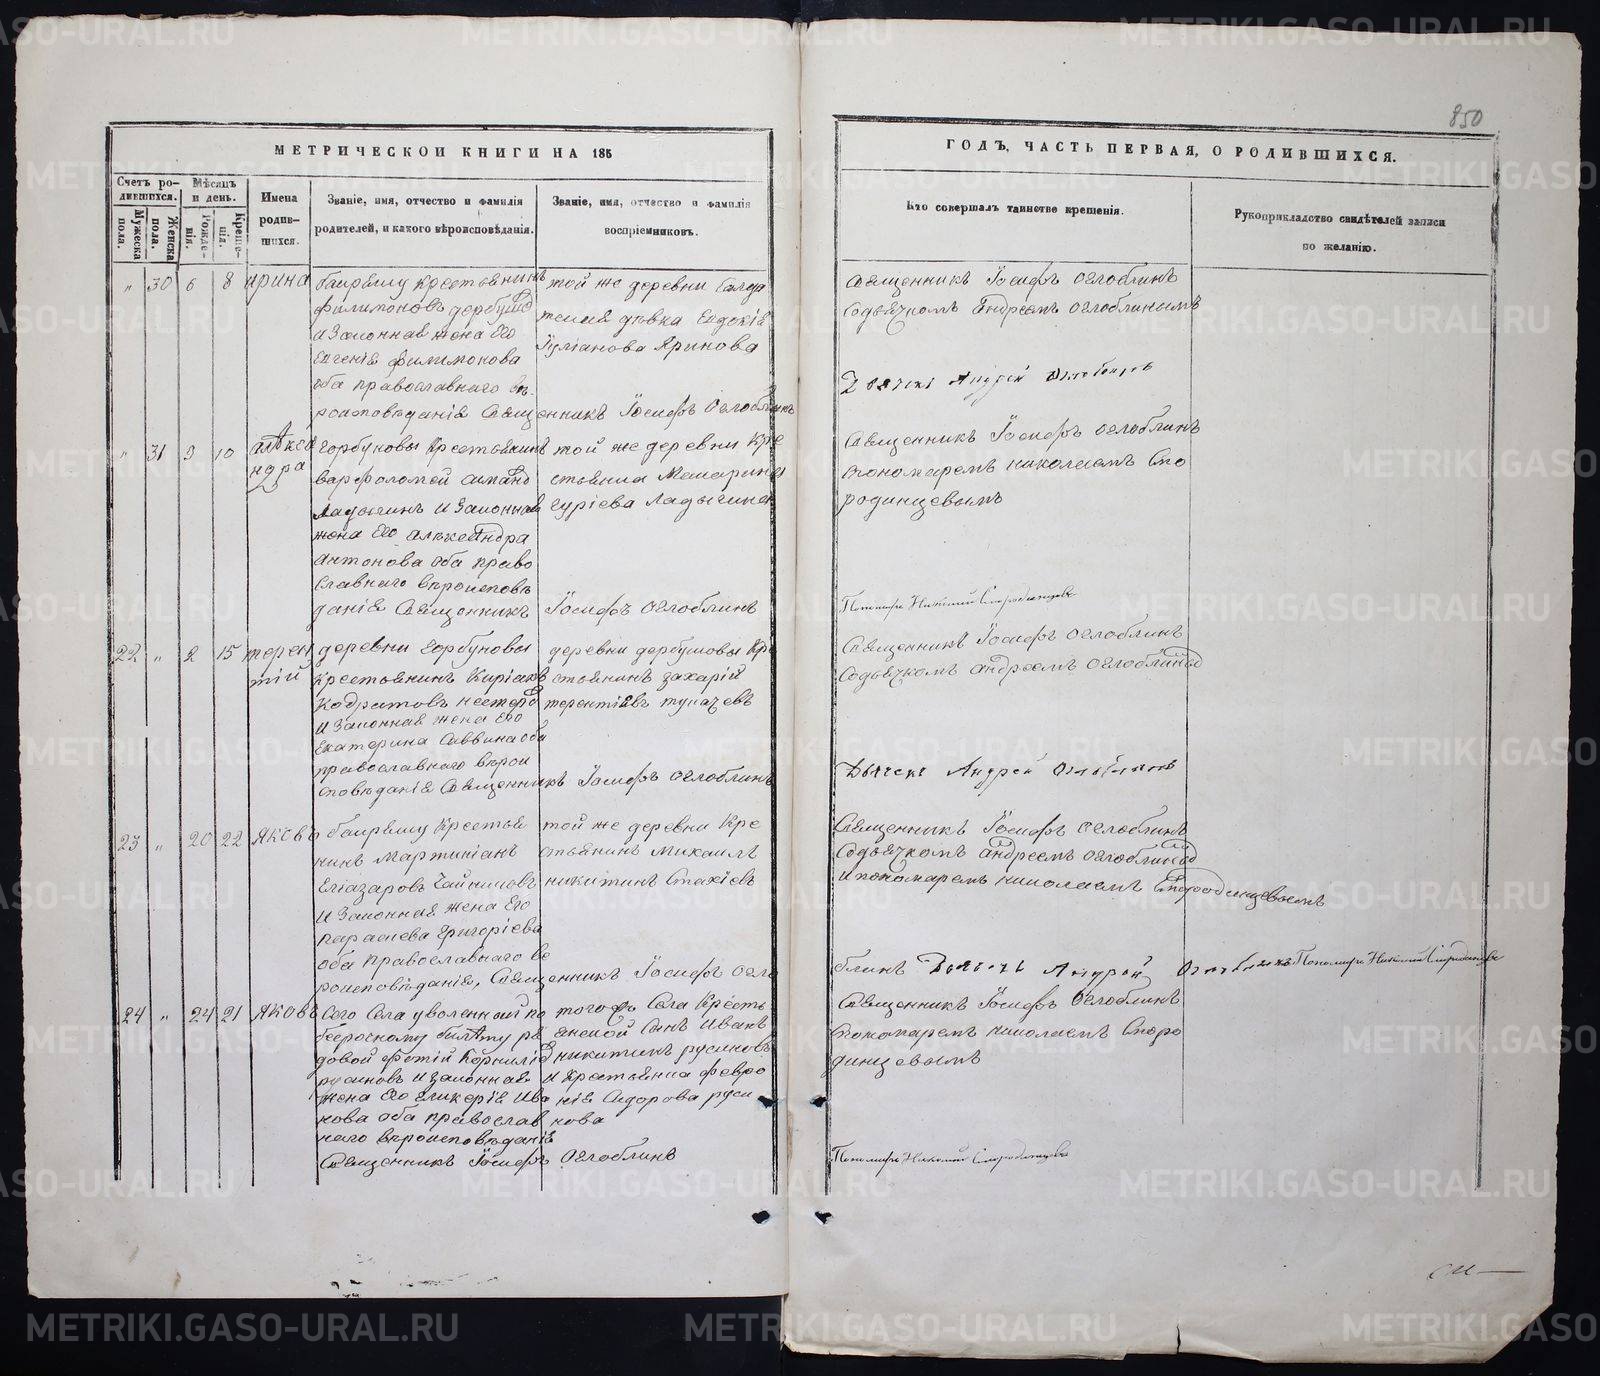 850
МЕТРИЧЕСКОЙ КНИГИ НА 185
ГОДЪ, ЧАСТЬ ПЕРВАЯ, О РОДИВШИХСЯ.
Счетъ родившихся.
Мужеска пола.
Женска пола.
Мѣсяцъ и день.
Рожденія.
Крещенія.
Имена родившихся.
Званіе, имя, отчество и фамилія
родителей, и какого вѣроисповѣданія.
Званіе, имя, отчество и фамилія
воспріемниковъ.
Кто совершалъ таинство крещенія.
Рукоприкладство свидѣтелей записи
по желанію.
" 30 6 8 ирина
крестьянинъ
филимоновъ
и законная жена Его
Евгенія филимонова
оба православнаго вѣ
роисповѣданія Священникъ Іосифъ Оглоблинъ
той же деревни
дѣвка Евдокія
Священникъ Іосифъ Оглоблинъ
Содьячкомъ Андреемъ Оглоблинымъ
Дьячекъ Андрей Оглоблинъ
" 31 9 10 Алекса
ндра
Горбуновы Крестьянинъ
варфоломей
Ладыгинъ и Законная
жена Его Александра
Антонова оба право
славнаго вѣроисповѣ
данія Священникъ Іосифъ Оглоблинъ
той же деревни Кре
стьянка
гуріева Ладыгина
Священникъ Іосифъ Оглоблинъ
спономаремъ николаемъ Смо
родинцевымъ
Пономарь Николай Смородинцевъ
22 " 2 15 терен
тій
деревни Горбуновы
крестьянинъ Киріакъ
Кодратовъ
и Законная жена Его
Екатерина Саввина оба
православнаго вѣрои
сповѣданія Священникъ Іосифъ Оглоблинъ
деревни дербушовы Кре
стьянинъ захарій
терентіевъ
Священникъ Іосифъ Оглоблинъ
Содьячкомъ Андреемъ Оглоблинымъ
Дьячекъ Андрей Оглоблинъ
23 " 20 22 Яковъ
Крестья
нинъ Мартиніанъ
Еліазаровъ
и Законная жена Его
Параскева Григоріева
оба православнаго ве
роисповѣданія, Священникъ Іосифъ Огло
той же деревни Кре
стьянинъ Михаилъ
никитинъ Стахіевъ
Священникъ Іосифъ Оглоблинъ
Содьячкомъ Андреемъ Оглоблинымъ
и пономаремъ николаемъ Смородинцевымъ
блинъ Дьячекъ Андрей Оглоблинъ Пономарь Николай Смородинцевъ
24 " 24 21 Яковъ
Сего Села уволенный по
безсрочному билету ря
довой фотій Корнилів
русиновъ и законная
жена Его Гликерія Ива
нова оба православ
наго вѣроисповѣданія
Священникъ Іосифъ Оглоблинъ
того жъ Села Кресть
янской Сынъ Иванъ
никитинъ русиновъ
и Крестьянка февро
нія Сидорова руси
нова
Священникъ Іосифъ Оглоблинъ
спономаремъ николаемъ Сморо
динцевымъ
Пономарь Николай Смородинцевъ
METRIKI.GASO-URAL.RU